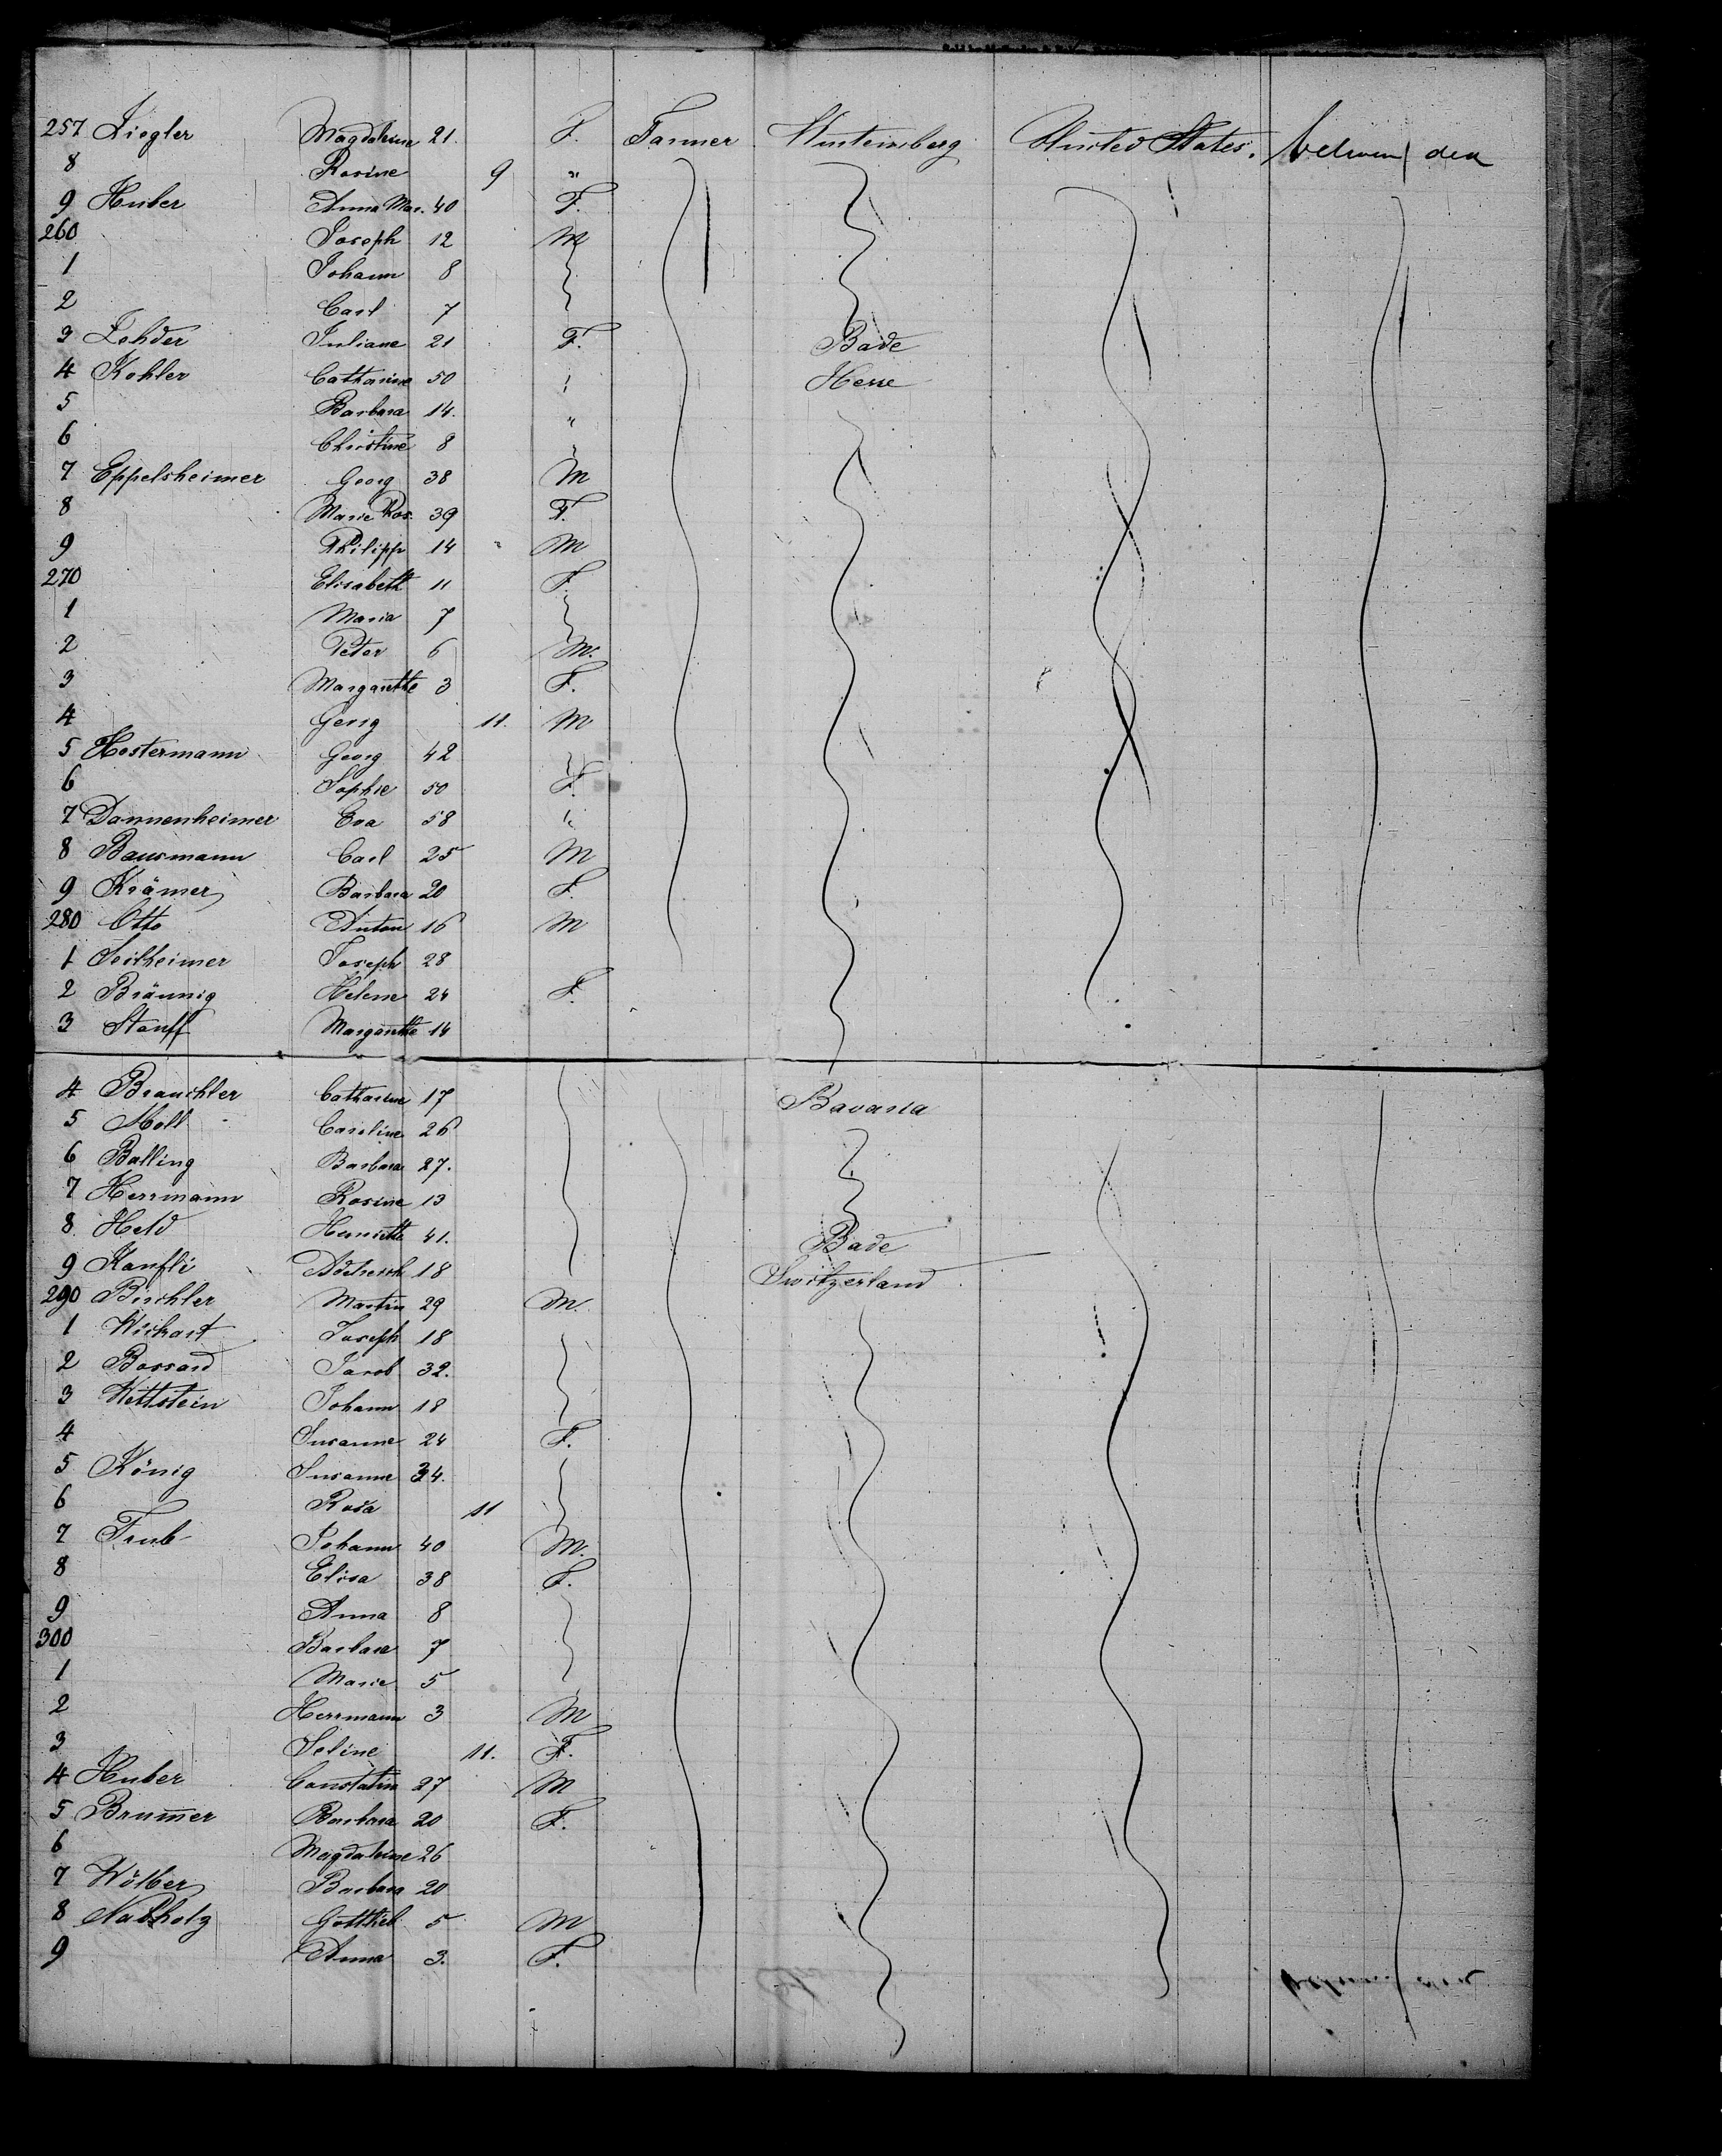 257 Ziegler Magdalena 21. F. Farmer Wurtemberg United States. between deck
8 Rosine 9 "
9 Huber Anna Mar. 40 F.
260 Joseph 12 M
1 Johann 8
2 Carl 7
3 Zehder Juliane 21 F. Bade
4 Kohler Catharine 50 Hesse
5 Barbara 14. "
6 Christine 8
7 Eppelsheimer Georg 38 M
8 Marie Ros. 39 F.
9 Philipp 14 M
270 Elisabeth 11 F.
1 Maria 7
2 Peter 6 M.
3 Margarethe 3 F.
4 Georg 11. M
5 Hostermann Georg 42
6 Sophie 50 F.
7 Dannenheimer Eva 58 "
8 Bausmann Carl 25 M
9 Krämer Barbara 20 F.
280 Otto Anton 16 M
1 Seilheimer Joseph 28
2 Bräunig Helene 24 F.
3 Stauff Margarethe 14
4 Brauchler Catharine 17 Bavaria
5 Moll Caroline 26
6 Balling Barbara 27.
7 Herrmann Rosine 13
8 Held Henriette 41. Bade
9 Kaufli 18 Switzerland
290 Bischler Martin 29 M.
1 Wichart Joseph 18
2 Bossard Jacob 32.
3 Wettstein Johann 18
4 Susanne 24 F.
5 König Susanne 34.
6 Rosa 11
7 Trub Johann 40 M.
8 Elisa 38 F.
9 Anna 8
300 Barbara 7
1 Marie 5
2 Herrmann 3 M
3 Seline 11. F.
4 Huber Constatin 27 M
5 Brum̄er Barbara 20 F.
6 Magdalene 26
7 Wölber Barbara 20
8 Nabholz Gottlieb 5 M
9 Anna 3. F.